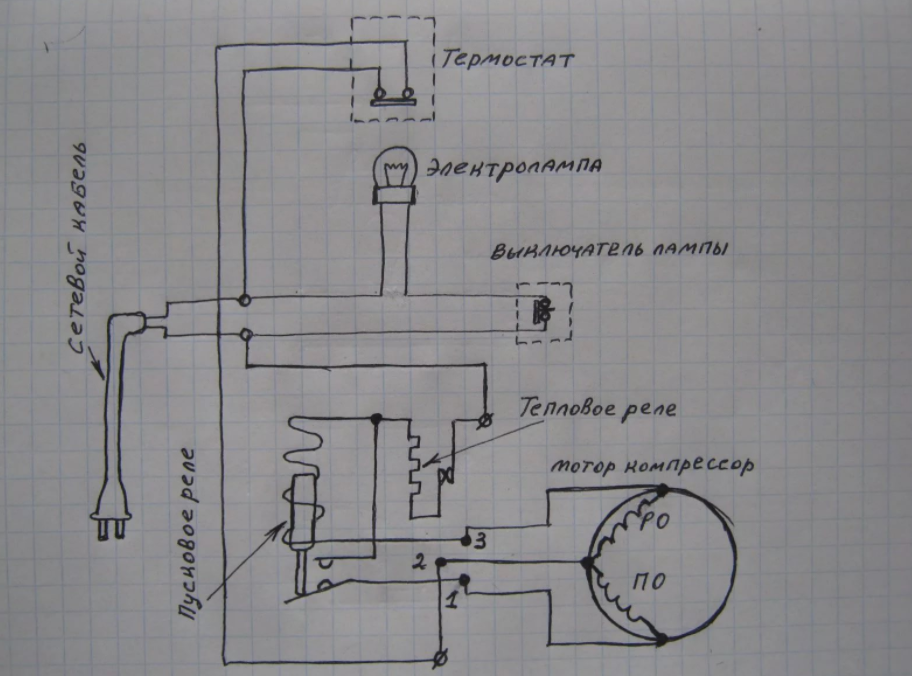 Термостат
Электролампа
Сетевой кабель
Выключатель лампы
Тепловое реле
Мотор компрессор
Пусковое реле
РО
3
2
ПО
1